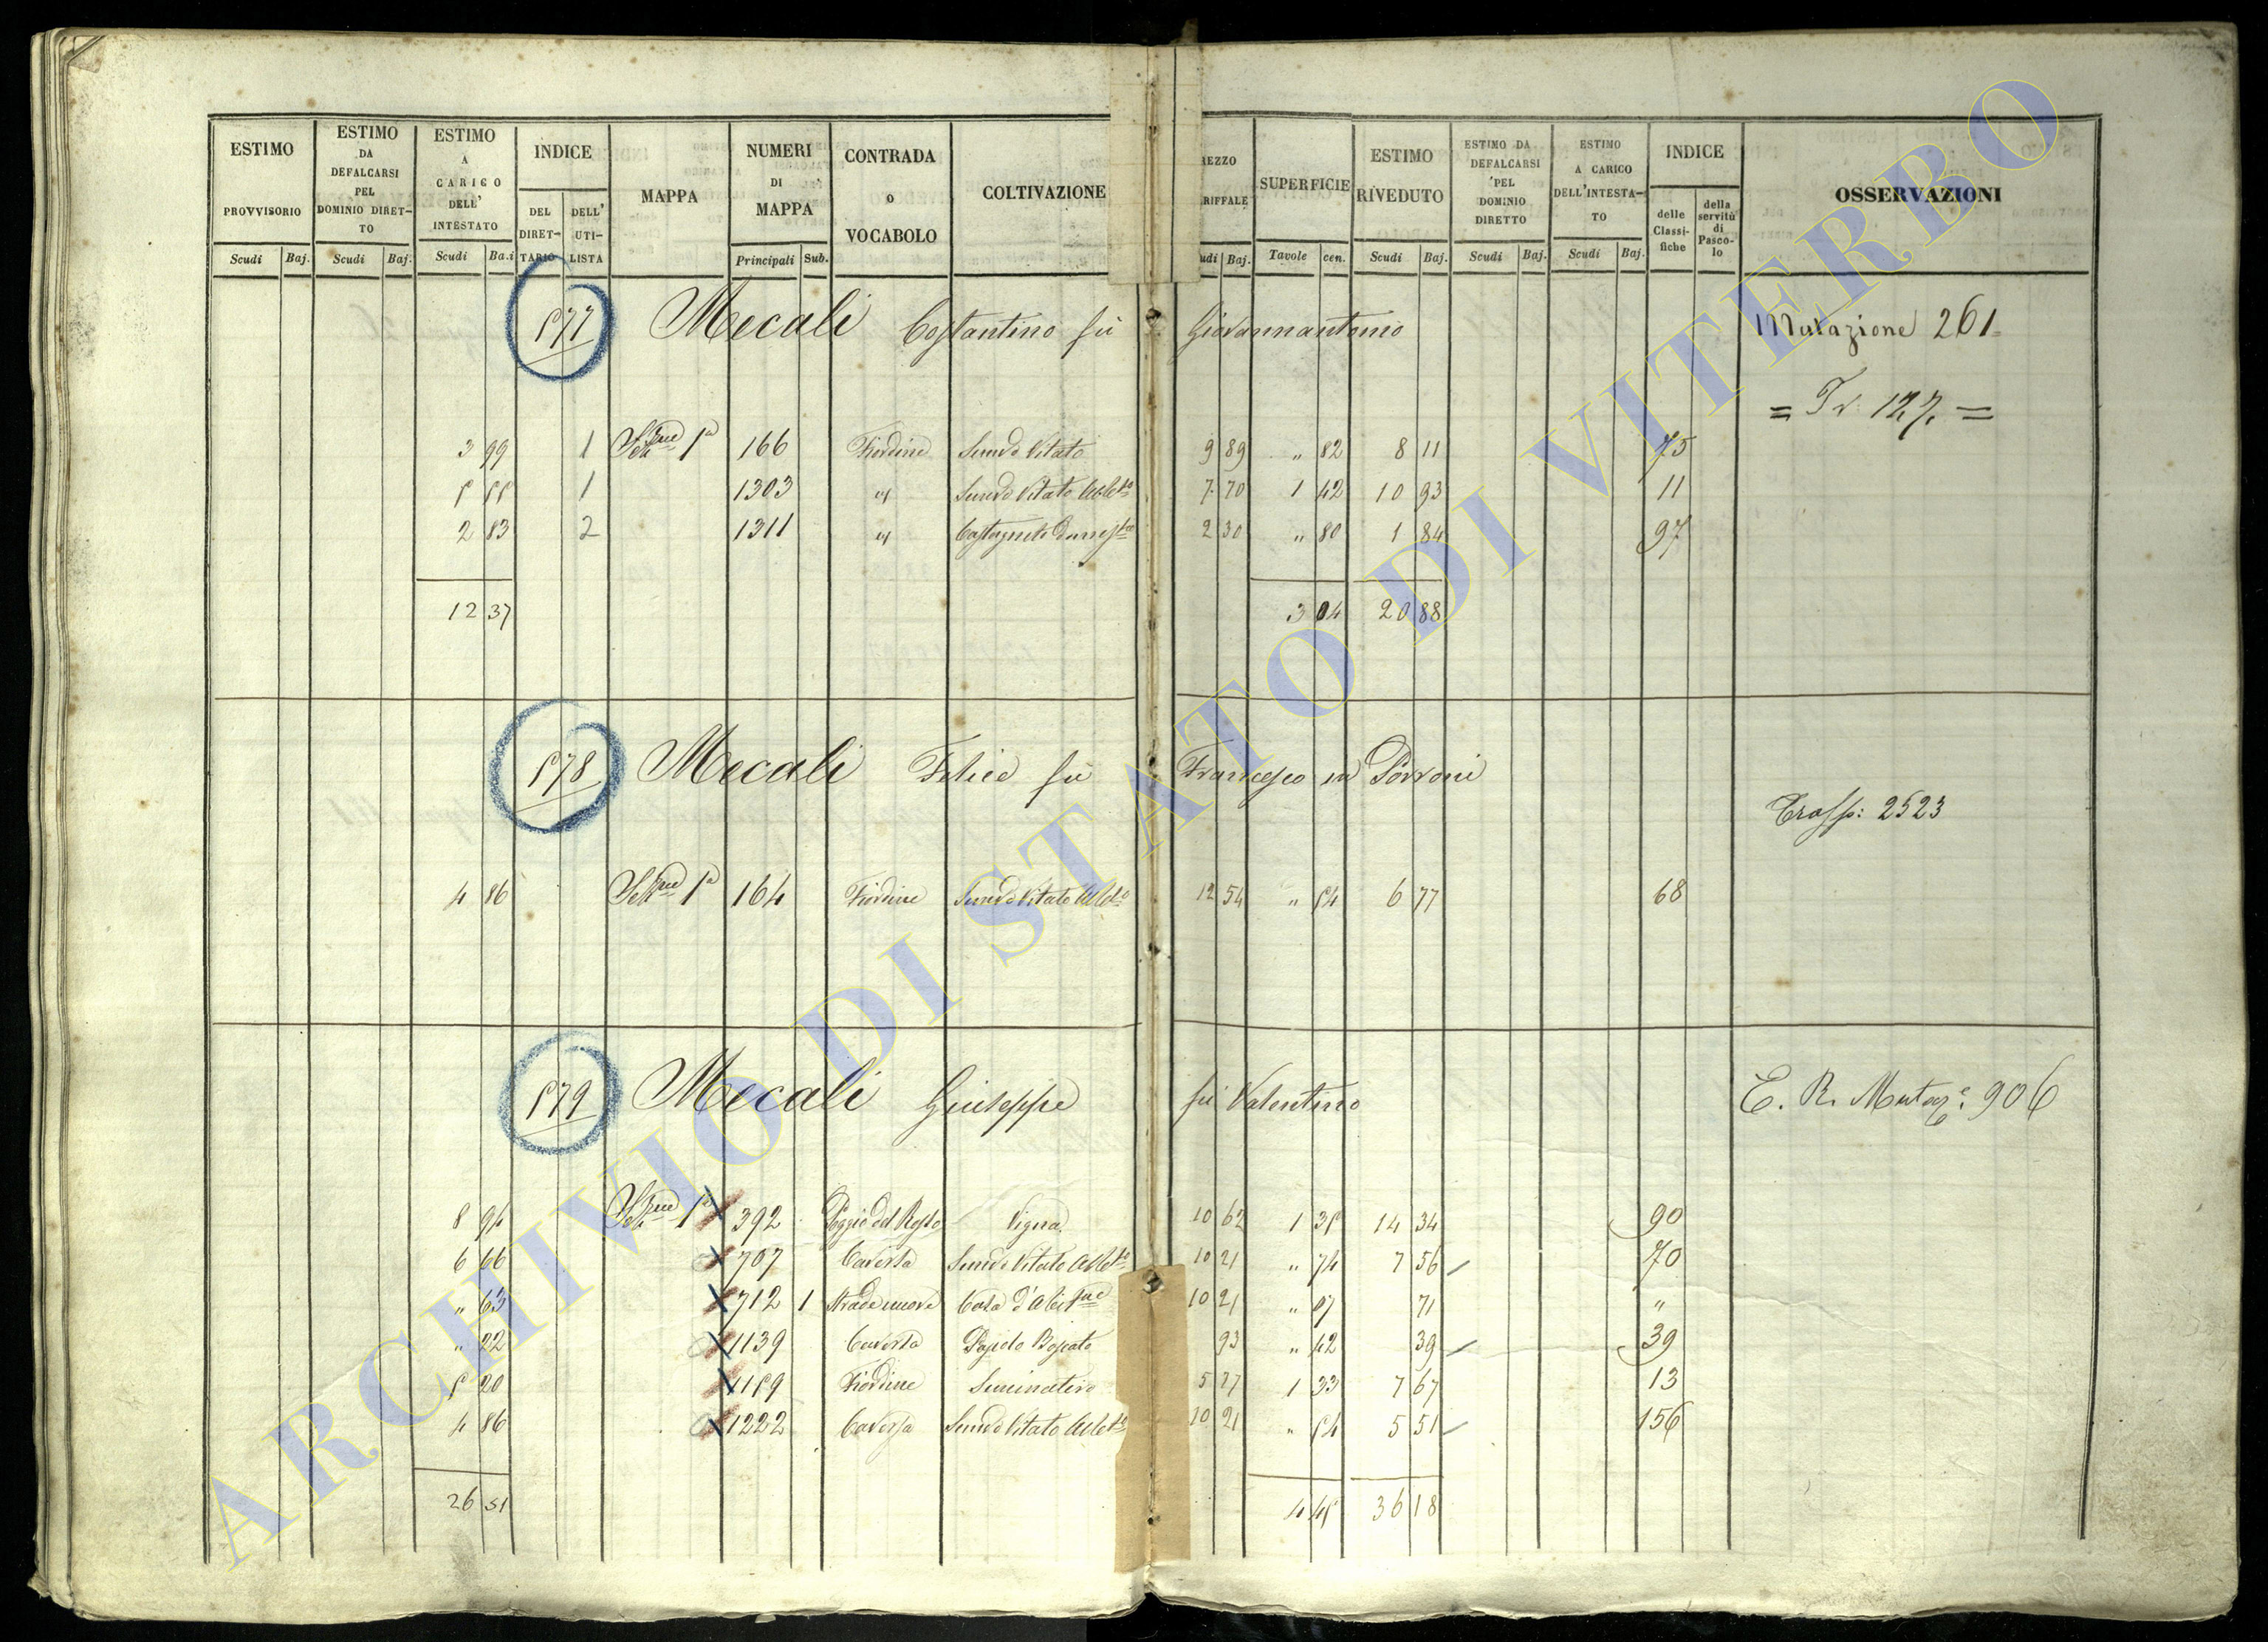 ESTIMO PROVVISORIO Scudi Baj.
ESTIMO DA DEFALCARSI PEL DOMINIO DIRET-TO Scudi Baj.
ESTIMO A CARICO DELL' INTESTATO Scudi Ba.i
INDICE DEL DIRET-TARIO DELL' UTI-LISTA
MAPPA
NUMERI DI MAPPA Principali Sub.
CONTRADA o VOCABOLO
COLTIVAZIONE
REZZO RIFFALE udi Baj.
SUPERFICIE Tavole cen.
ESTIMO RIVEDUTO Scudi Baj.
ESTIMO DA DEFALCARSI PEL DOMINIO DIRETTO Scudi Baj.
ESTIMO A CARICO DELL'INTESTA-TO Scudi Baj.
INDICE delle Classi-fiche della servitù di Pasco-lo
OSSERVAZIONI
577 Mecali Costantino fù Giovannantonio Mutazione 261
= Tr. 127. =
3 99 1 Sezne 1a 166 Fiordine Semvo Vitato 9 89 " 82 8 11 75
5 55 1 1303 " Semvo Vitato Alb.to 7 70 1 42 10 93 11
2 83 2 1311 " Castagneto 2 30 " 80 1 84 97
12 37 3 04 20 88
578 Mecali Felice fù Francesco in Porroni
Trasp: 2523
4 86 Sezne 1a 164 Fiordine Semvo Vitato Alb.to 12 54 " 54 6 77 68
579 Mecali Giuseppe fù Valentino E. R. Mutaz.e 906
8 94 Sezne 1a 392 Poggio del Rosso Vigna 10 62 1 35 14 34 90
6 66 707 Caversa Semvo Vitato Alb.to 10 21 " 74 7 56 70
" 63 712 1 Strade nuove Casa d'Abit.ne 10 21 " 07 71 "
" 22 1139 Caversa Pascolo Boscato 93 " 42 39 39
5 20 1159 Fiordine Seminativo 5 77 1 33 7 67 13
4 86 1222 Caversa Semvo Vitato Alb.to 10 21 " 54 5 51 156
26 51 4 45 36 18
ARCHIVIO DI STATO DI VITERBO